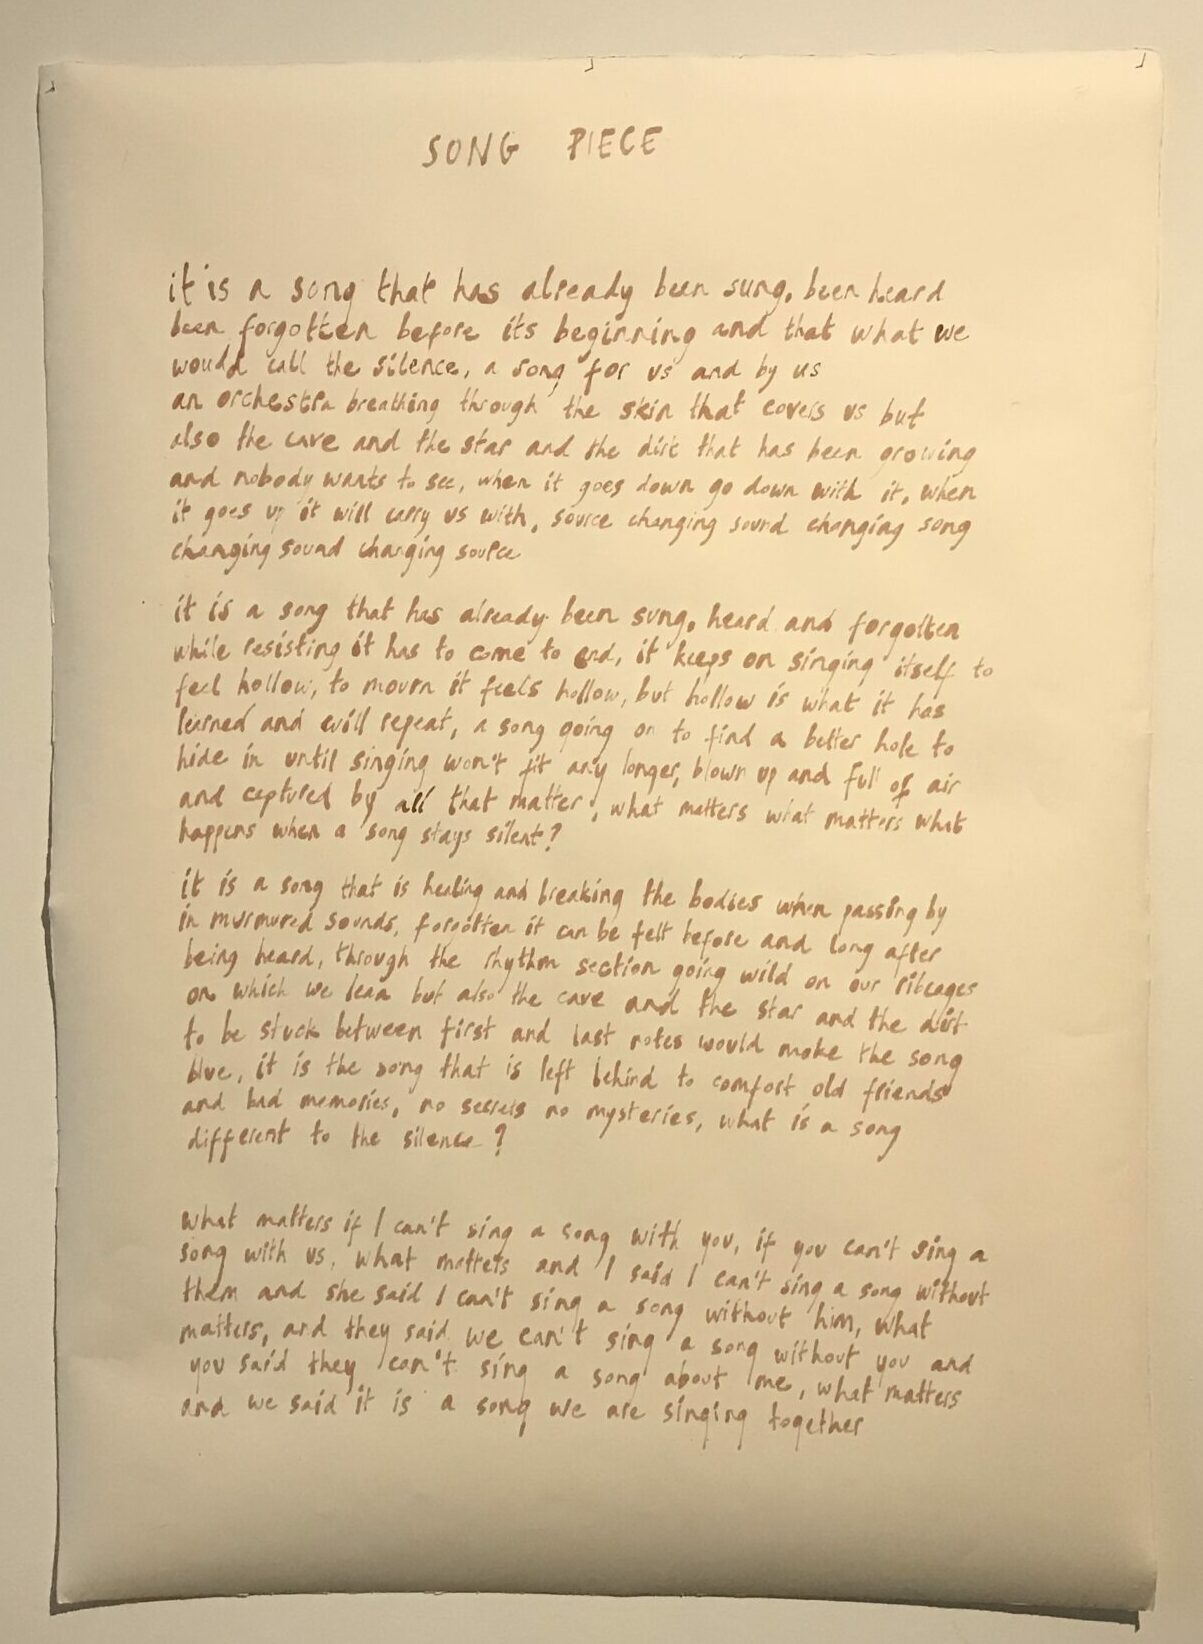 SONG PIECE
it is a song that has already been sung, been heard
been forgotten before its beginning and that what we
would call the silence, a song for us and by us
an orchestra breathing through the skin that covers us but
also the cave and the star and the dirt that has been growing
and nobody wants to see, when it goes down go down with it, when
it goes up it will carry us with, source changing sound changing song
changing sound changing source
it is a song that has already been sung, heard and forgotten
while resisting it has to come to end, it keeps on singing itself to
feel hollow, to mourn it feels hollow, but hollow is what it has
learned and will repeat, a song going on to find a better hole to
hide in until singing won't fit any longer, blown up and full of air
and captured by all that matter, what matters what matters what
happens when a song stays silent?
it is a song that is healing and breaking the bodies when passing by
in murmured sounds, forgotten it can be felt before and long after
being heard, through the rhythm section going wild on our ribcages
on which we lean but also the cave and the star and the dirt
to be stuck between first and last notes would make the song
blue, it is the song that is left behind to comfort old friends
and bad memories, no secrets no mysteries, what is a song
different to the silence?
what matters if I can't sing a song with you, if you can't sing a
song with us, what matters and I said I can't sing a song without
them and she said I can't sing a song without him, what
matters, and they said we can't sing a song without you and
you said they can't sing a song about me, what matters
and we said it is a song we are singing together